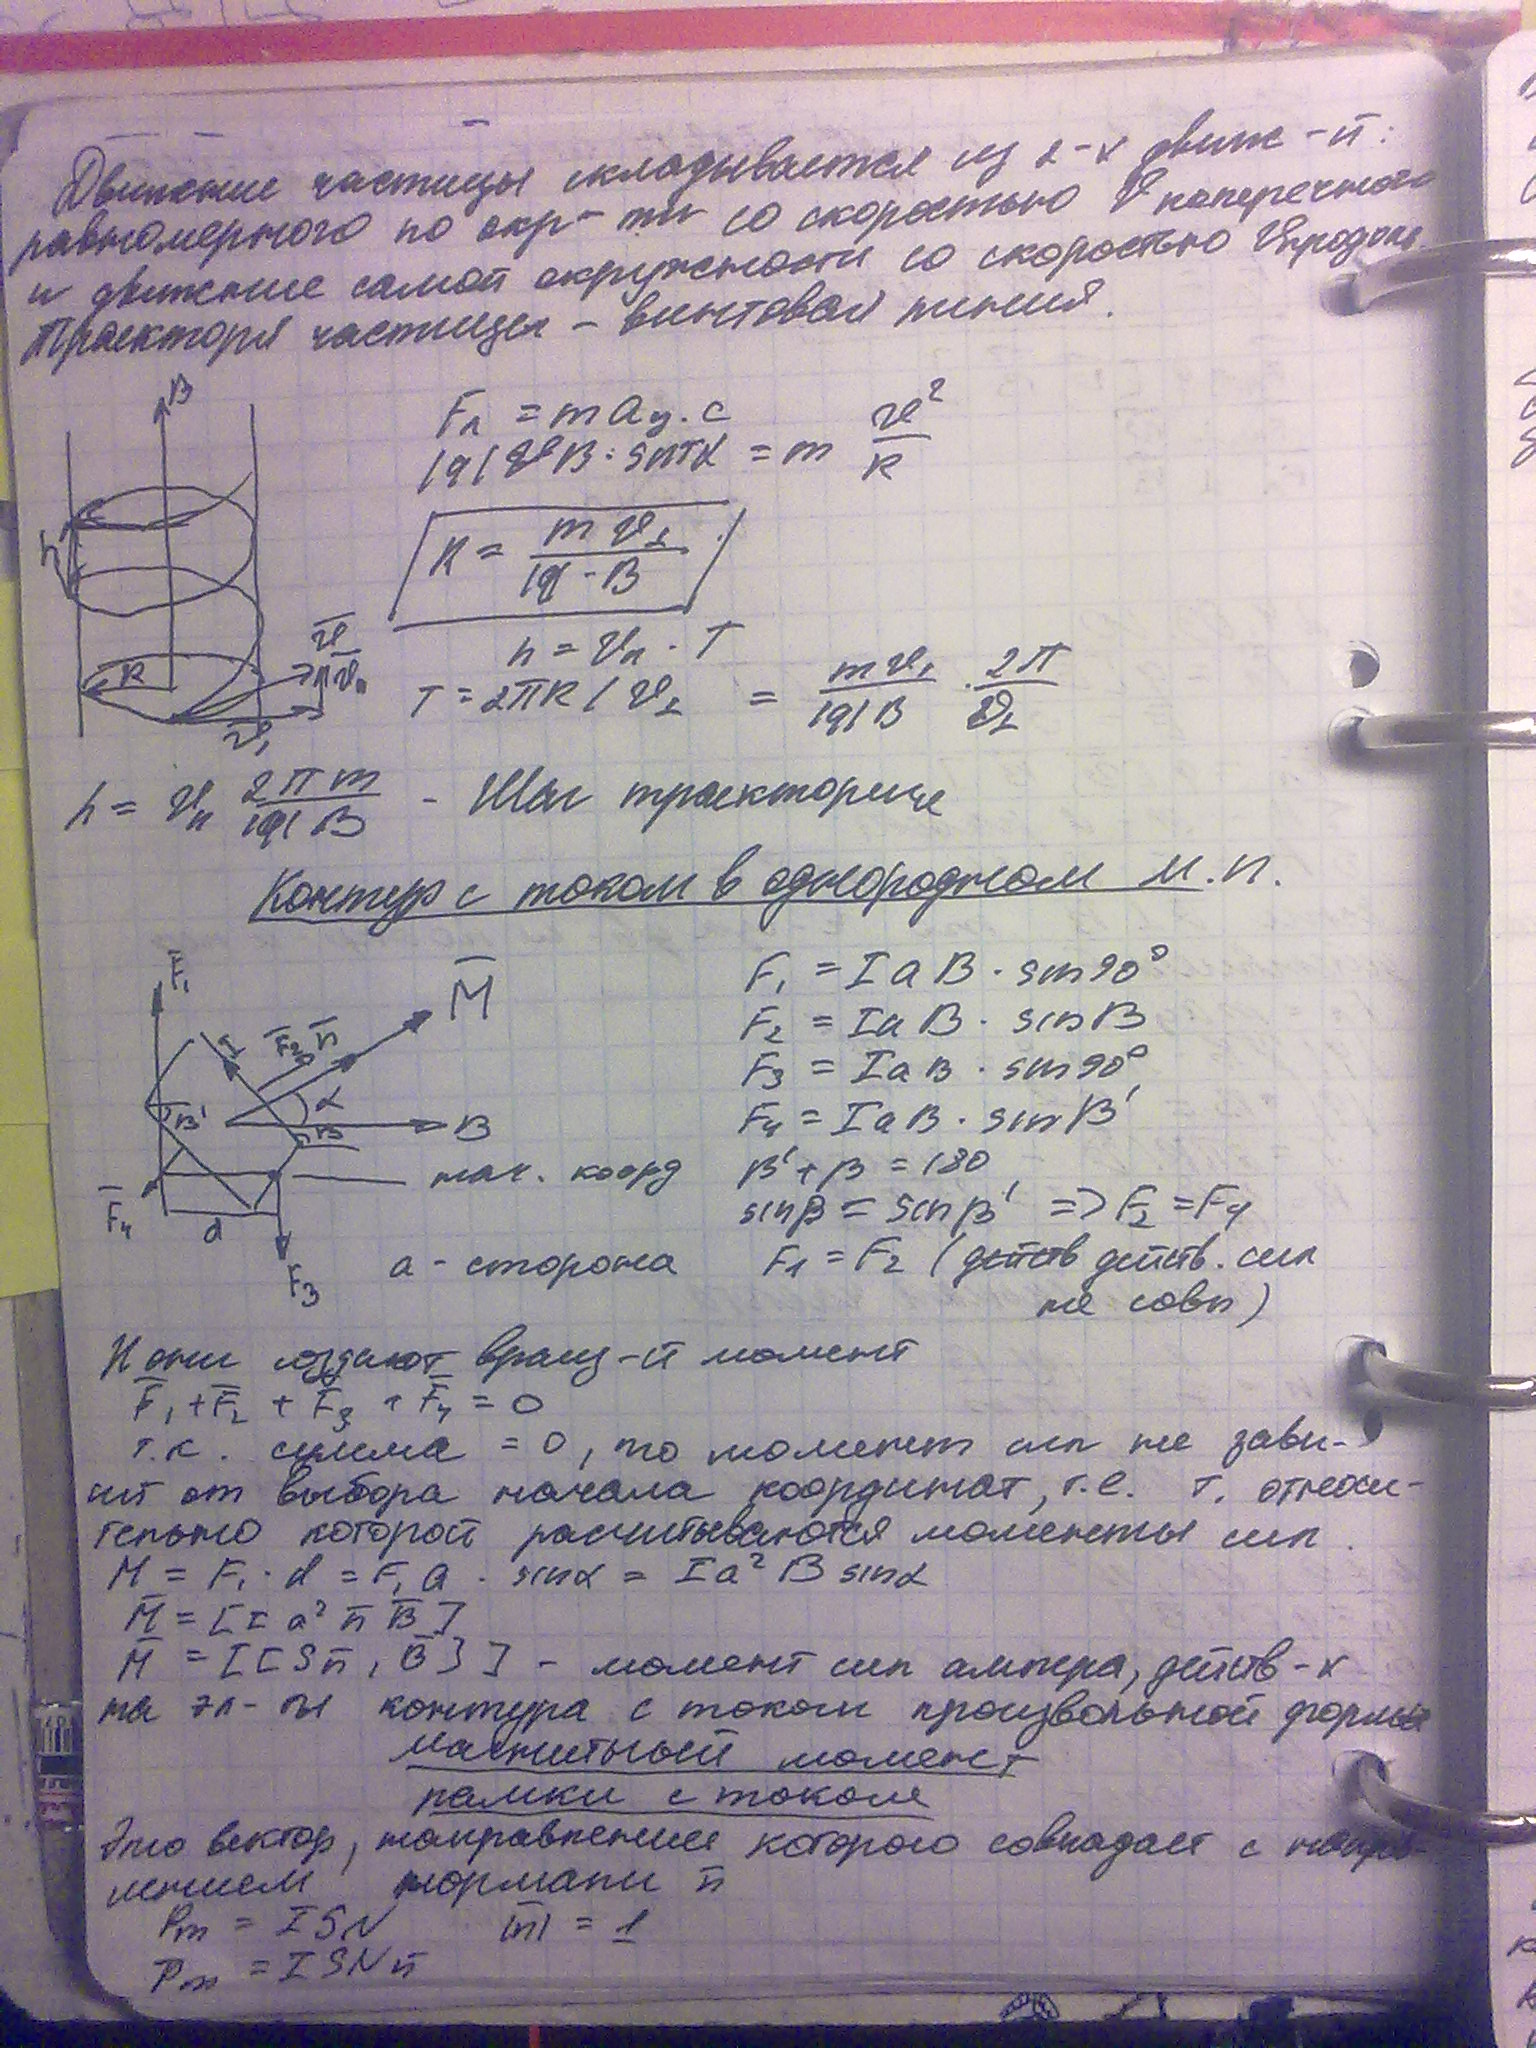 Движение частицы складывается из 2-х движ-й:
равномерного по окр-ти со скоростью V поперечного
и движение самой окружности со скоростью Vпродоль
Траектория частицы - винтовая линия.
B
Fл = m aц.с
|q|VB·sinα = m V²/R
h
R = mV⊥/|q|·B
h = Vп · T
R
V
Vп
V⊥
T = 2πR/V⊥ = mV⊥/|q|B · 2π/V⊥
h = Vп 2πm/|q|B - Шаг траектории
Контур с током в однородном м.п.
F₁
M
F₁ = IaB·sin90°
F₂ = IaB·sinβ
F₃ = IaB·sin90°
F₄ = IaB·sinβ'
I
F₂
n
α
β'
β
B
нач. коорд
β'+β = 180
F₄
d
sinβ = sinβ' => F₂ = F₄
F₃
a - сторона
F₁ = F₂ (действ. сил
не совп)
И они создают вращ-й момент
F̄₁ + F̄₂ + F̄₃ + F̄₄ = 0
т.к. сумма = 0, то момент сил не зави-
сит от выбора начала координат, т.е. т. относи-
тельно которой расчитываются моменты сил.
M = F₁·d = F₁a·sinα = Ia²B sinα
M̄ = [I a² n̄ B̄]
M̄ = I[[Sn̄, B̄]] - момент сил ампера, действ-х
на эл-ты контура с током произвольной формы
магнитный момент
рамки с током
Это вектор, направление которого совпадает с направ-
лением нормали n̄
Pm = ISN |n̄| = 1
P̄m = ISNn̄